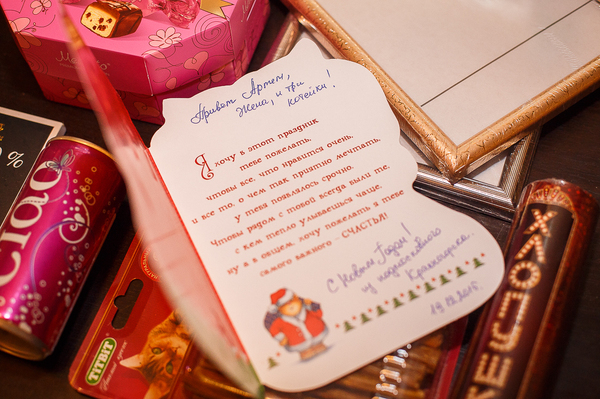 Привет Артем,
Жена, и три
котейки!
Я хочу в этот праздник
тебе пожелать,
чтобы все, что нравится очень,
и все то, о чем так приятно мечтать,
у тебя появлялось срочно.
Чтобы рядом с тобой всегда были те,
с кем тепло улыбаешься чаще,
ну а в общем, хочу пожелать я тебе
самого важного - СЧАСТЬЯ!
С Новым Годом!
из подмосковного
Красногорска.
19.12.2015.
CIAO
%
TiTBiT
ХЛОПУШКА